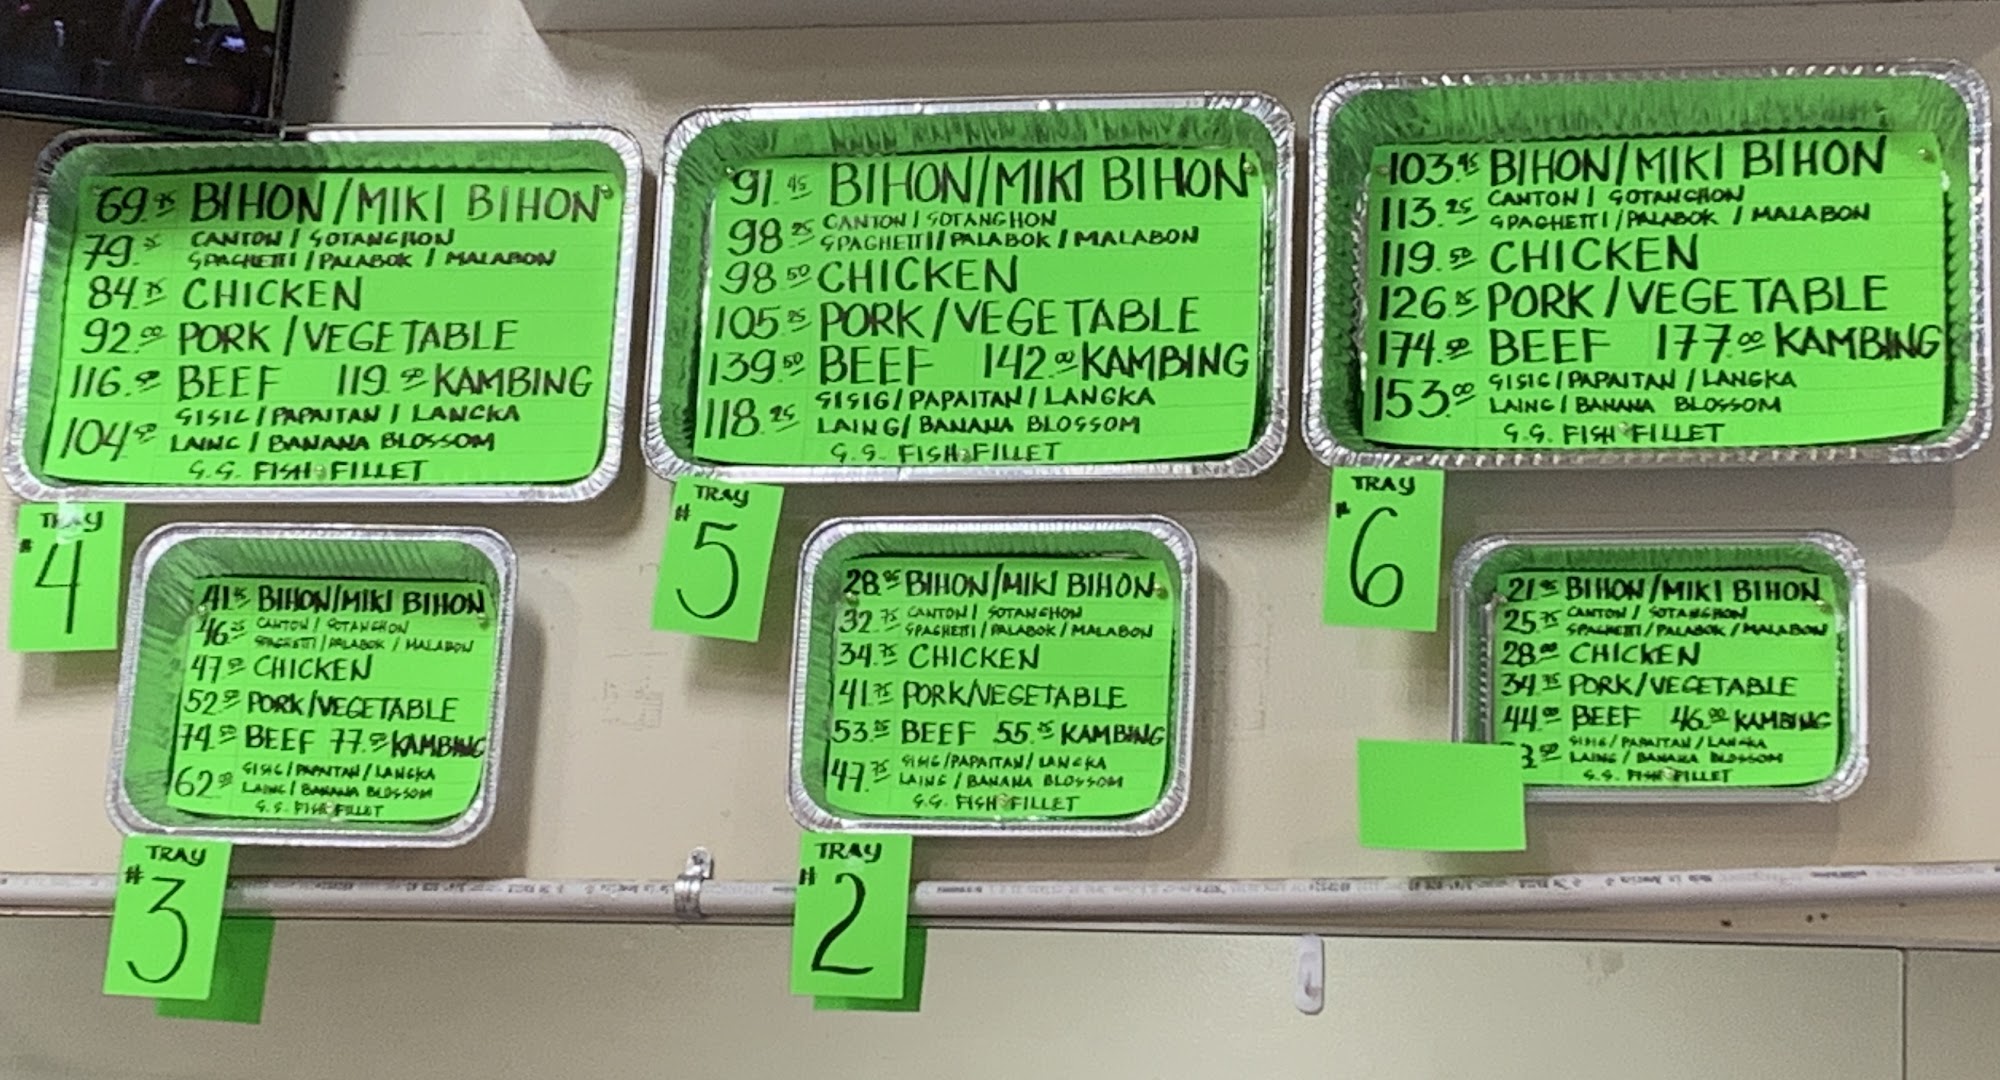 69.95 BIHON/MIKI BIHON
79. CANTON / SOTANGHON
SPAGHETTI / PALABOK / MALABON
84.75 CHICKEN
92.00 PORK / VEGETABLE
116. BEEF 119. KAMBING
104. SISIG / PAPAITAN / LANGKA
LAING / BANANA BLOSSOM
S.S. FISH FILLET
TRAY
# 4
91.45 BIHON/MIKI BIHON
98.25 CANTON / SOTANGHON
SPAGHETTI / PALABOK / MALABON
98.50 CHICKEN
105. PORK / VEGETABLE
139.50 BEEF 142.00 KAMBING
118.25 SISIG / PAPAITAN / LANGKA
LAING / BANANA BLOSSOM
S.S. FISH FILLET
TRAY
# 5
103.45 BIHON/MIKI BIHON
113.25 CANTON / SOTANGHON
SPAGHETTI / PALABOK / MALABON
119.50 CHICKEN
126. PORK / VEGETABLE
174. BEEF 177.00 KAMBING
153.00 SISIG / PAPAITAN / LANGKA
LAING / BANANA BLOSSOM
S.S. FISH FILLET
TRAY
# 6
41. BIHON/MIKI BIHON
46. CANTON / SOTANGHON
SPAGHETTI / PALABOK / MALABON
47. CHICKEN
52. PORK/VEGETABLE
74. BEEF 77. KAMBING
62. SISIG / PAPAITAN / LANGKA
LAING / BANANA BLOSSOM
S.S. FISH FILLET
TRAY
# 3
28. BIHON/MIKI BIHON
32.75 CANTON / SOTANGHON
SPAGHETTI / PALABOK / MALABON
34.75 CHICKEN
41.75 PORK/VEGETABLE
53. BEEF 55. KAMBING
47.75 SISIG / PAPAITAN / LANGKA
LAING / BANANA BLOSSOM
S.S. FISH FILLET
TRAY
# 2
21. BIHON/MIKI BIHON
25.75 CANTON / SOTANGHON
SPAGHETTI / PALABOK / MALABON
28.00 CHICKEN
34. PORK/VEGETABLE
44.00 BEEF 46.00 KAMBING
SISIG / PAPAITAN / LANGKA
LAING / BANANA BLOSSOM
S.S. FISH FILLET